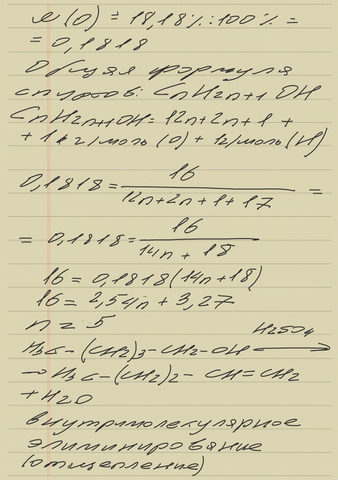 ω(O) = 18,18% : 100% =
= 0,1818
Общая формула
спиртов: CnH2n+1 OH
CnH2n+1OH = 12n+2n+1+
+ 1 г/моль (O) + 1г/моль(H)
0,1818 = 16 / 12n+2n+1+17 =
= 0,1818 = 16 / 14n + 18
16 = 0,1818(14n+18)
16 = 2,54n + 3,27
n = 5
H2SO4
H3C-(CH2)3-CH2-OH ⟶
→ H3C-(CH2)2-CH=CH2
+ H2O
внутримолекулярное
элиминирование
(отщепление)